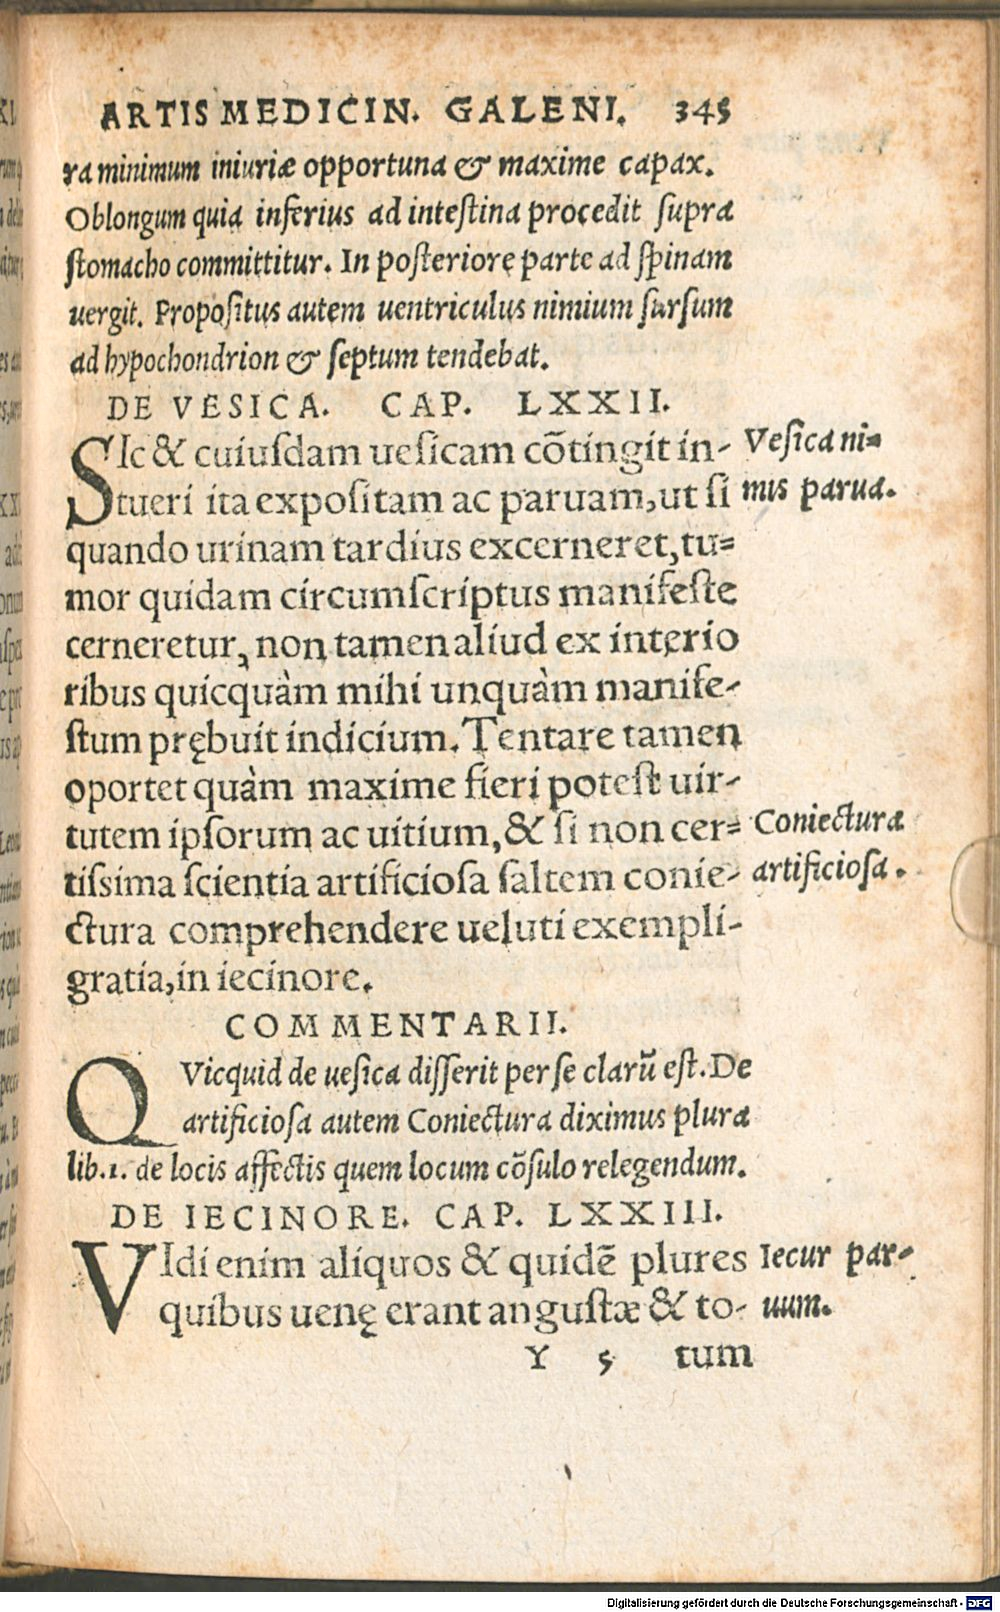 ARTIS MEDICIN. GALENI. 345
ra minimum iniuriæ opportuna & maxime capax.
Oblongum quia inferius ad intestina procedit supra
stomacho committitur. In posteriore parte ad spinam
uergit. Propositus autem uentriculus nimium sursum
ad hypochondrion & septum tendebat.
DE VESICA. CAP. LXXII.
SIc & cuiusdam uesicam cõtingit in- Vesica ni=
tueri ita expositam ac paruam, ut si mis parua.
quando urinam tardius excerneret, tu=
mor quidam circumscriptus manifeste
cerneretur, non tamen aliud ex interio
ribus quicquàm mihi unquàm manife-
stum prębuit indicium. Tentare tamen
oportet quàm maxime fieri potest uir-
tutem ipsorum ac uitium, & si non cer= Coniectura
tissima scientia artificiosa saltem conie- artificiosa.
ctura comprehendere ueluti exempli-
gratia, in iecinore.
COMMENTARII.
QVicquid de uesica disserit per se clarũ est. De
artificiosa autem Coniectura diximus plura
lib. 1. de locis affectis quem locum cõsulo relegendum.
DE IECINORE. CAP. LXXIII.
VIdi enim aliquos & quidẽ plures Iecur par-
quibus uenę erant angustæ & to- uum.
Y 5 tum
Digitalisierung gefördert durch die Deutsche Forschungsgemeinschaft - DFG